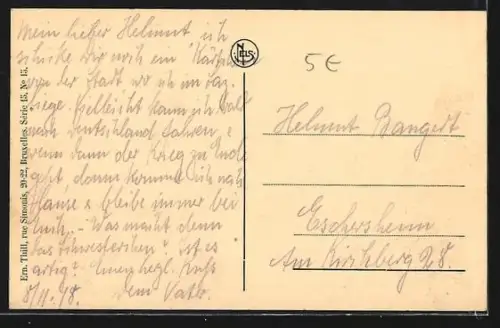 mein lieber Helmut ich
schicke dir noch ein Kärtchen
von der Stadt wo ich im Laz.
liege. Vielleicht kann ich bald
nach Deutschland fahren &
wenn dann der Krieg zu Ende
geht dann komme ich nach
Hause & bleibe immer bei
Euch. - Was macht denn
das Schwesterchen? Ist es
artig? herzl. Kuss
8/11. 18. dem Vater.
Ern. Thill, rue Simonis, 20-22, Bruxelles. Série 15, No 15.
NELS
5€
Helmut Bangert
Eschersheim
Am Kirchberg 28.